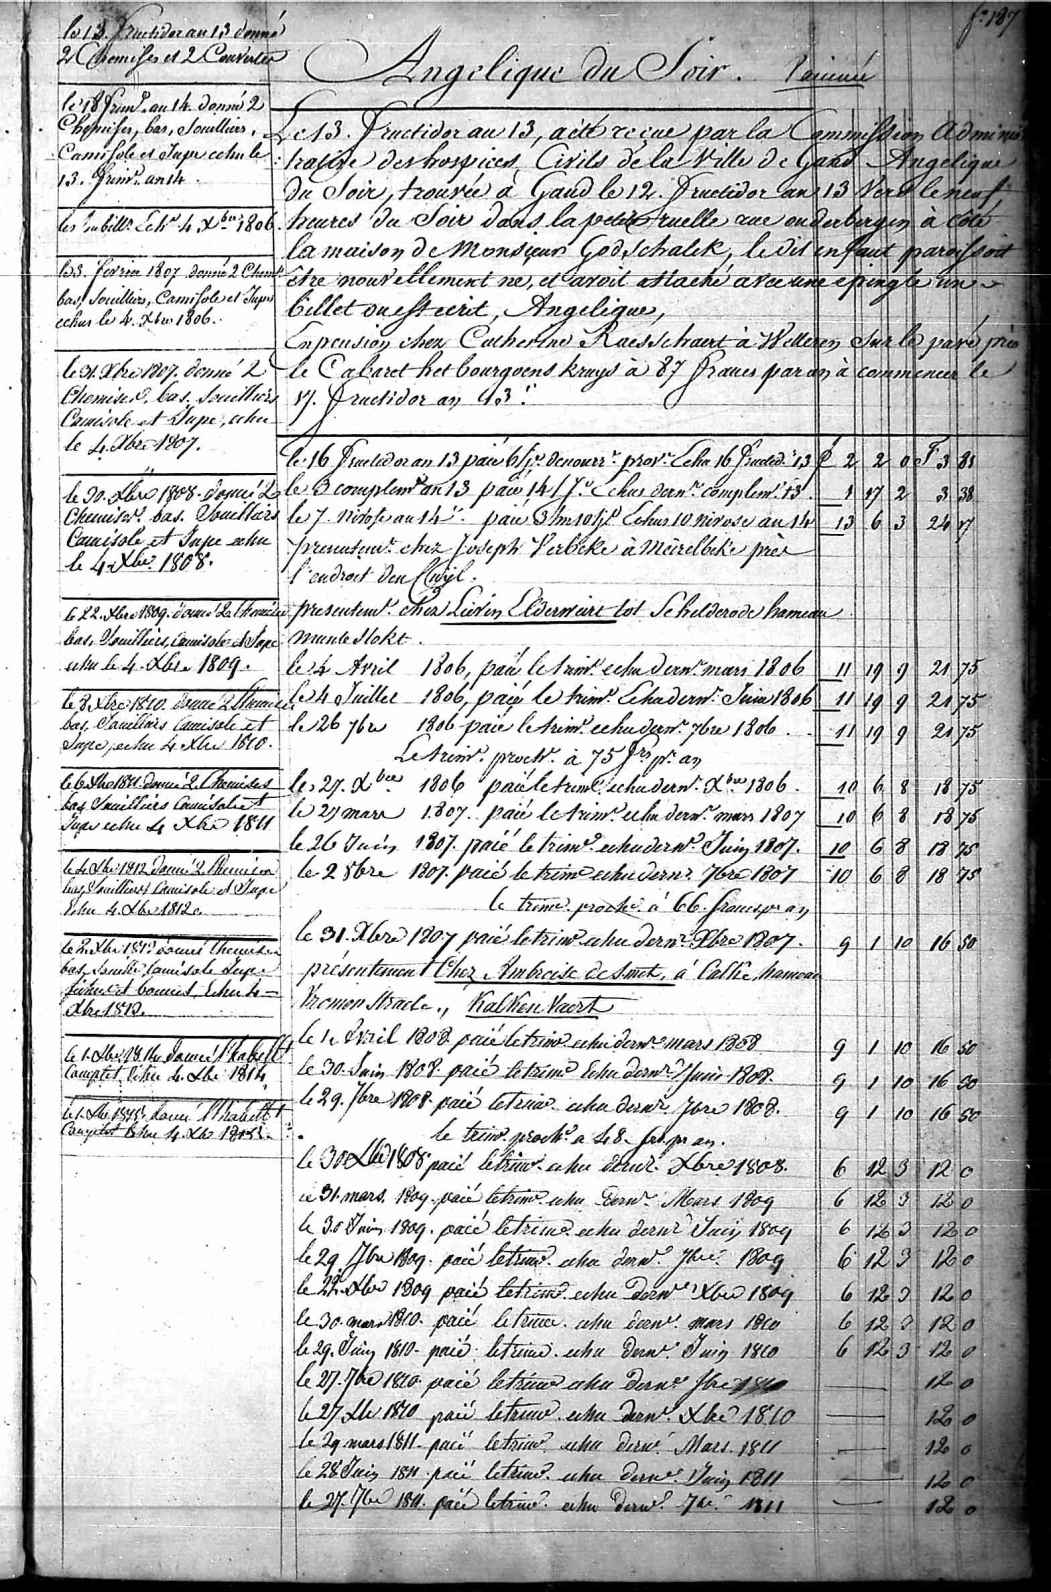 fo 187
le 13. fructidor an 13 donné
2 Chemises et 2 Couvertes
le 18 frimre. an 14. donné 2
Chemises, bas, Souilliers,
Camisole et Jupe echu le
13. frimr. an 14.
les habillts. Echs. 4 Xbre 1806.
le 3. fevrier 1807 donné 2 Chems.
bas, Souilliers, Camisole et Jupe
echus le 4. Xbre 1806.
le 31. Xbre 1807. donné 2
Chemises, bas. Souilliers
Camisole et Jupe, echu
le 4. Xbre 1807.
le 30. Xbre 1808. donné 2
Chemises. bas. Souilliers
Camisole et Jupe echu
le 4 Xbre. 1808.
le 22. Xbre 1809. donné 2 Chemises
bas, Souilliers, Camisole et Jupe
echu le 4. Xbre 1809.
le 3. Xbre 1810. donné 2 Chemises
bas, Souilliers Camisole et
Jupe, echu 4 Xbre 1810.
le 6 Xbre 1811. donné 2 Chemises
bas Souilliers Camisole et
Jupe echu 4 Xbre 1811
le 4 Xbre 1812 donné 2 Chemises
bas, Souilliers Camisole et Jupe
echu 4 Xbre 1812.
bas, Souill. Camisole Jupe
fichu et bonnet, Echu 4
Xbre 1813.
le 1. Xbre 1814 donné l'habillt
Complet Echu 4 Xbre 1814,
le 1. Xbre 1815. donné l'habillt
Complet Echu 4 Xbre 1815.
Angelique du Soir.
Le 13. fructidor an 13, a été reçue par la Commission Adminis
trative des hospices Civils de la Ville de Gand Angelique
du Soir, trouvée à Gand le 12. fructidor an 13 Vers le neuf
heures du Soir dans la petite ruelle rue onderbergen à Coté
la maison de Monsieur Godschalck, le dit enfant paroissoit
être nouvellement né, et avoit attaché avec une épingle un
billet ou est ecrit, Angelique,
En pension chez Catherine Raesschaert à Welteren Sur le pavé, près
le Cabaret het bourgoens kruys à 87 francs par an à commencer le
17. fructidor an 13.
le 16 fructidor an 13 paié 6 js. denourre. provre. Echu 16 fructidr. 13 £ 2 2 0 F 3 81
le 3 complemre an 13 paié 14 js. Echus dernr. complemre. 13. 1 17 2 3 38
le 7. nivose an 14. paié 3 ms 10 js Echus 10 nivose an 14 13 6 3 24 17
presentemt. chez Joseph Verbeke à Meirelbeke près
l'endroit den
presentemt. chez Lievin Elderweirt tot Schelderode hameau
munte stokt.
le 4 Avril 1806, paié le trimr. echu dernr. mars 1806 11 19 9 21 75
le 4 Juillet 1806, paié le trimr. Echu dernr. Juin 1806 11 19 9 21 75
le 26 7bre 1806 paié le trimr. echu dernr. 7bre 1806 11 19 9 21 75
Le trimr. prochr. à 75 frs pr. an
le 27. Xbre 1806 paié le trimr. echu dernr. Xbre 1806. 10 6 8 18 75
le 27 mars 1807. paié le trimr. echu dernr. mars 1807 10 6 8 18 75
le 26 Juin 1807. paié le trimr. echu dernr. Juin 1807. 10 6 8 18 75
le 2 8bre 1807. paié le trimr echu dernr. 7bre 1807 10 6 8 18 75
le trimr. prochr. à 66. francs pr an
le 31. Xbre 1807 paié le trimr. echu dernr. Xbre 1807. 9 1 10 16 50
présentement Chez Ambroise de Smet, à Calke, hameau
Vromon Straete, Kalken Vaert
le 1. Avril 1808 paié le trimr. echu dernr. mars 1808 9 1 10 16 50
le 30. Juin 1808. paié le trimr Echu dernr. Juin 1808. 9 1 10 16 50
le 29. 7bre 1808. paié le trimr. echu dernr. 7bre 1808. 9 1 10 16 50
le trimr. prochr. à 48. frs. pr an.
le 30 Xbre 1808. paié le trimr. echu dernr. Xbre 1808. 6 12 3 12 0
le 31. mars. 1809. paié le trimr. echu dernr. Mars 1809 6 12 3 12 0
le 30 Juin 1809. paié le trimr. echu dernr. Juin 1809 6 12 3 12 0
le 29. 7bre 1809. paié le trimr. echu dernr. 7bre. 1809 6 12 3 12 0
le 22. Xbre 1809 paié le trimr. echu dernr. Xbre 1809 6 12 3 12 0
le 30. mars 1810. paié le trimr. echu dernr. mars 1810 6 12 3 12 0
le 29. Juin 1810. paié le trimr. echu dernr. Juin 1810 6 12 3 12 0
le 27. 7bre 1810. paié le trimr echu dernr. 7bre 1810 12 0
le 27 Xbre 1810 paié le trimr. echu dernr. Xbre 1810 12 0
le 29 mars 1811. paié le trimr. echu dernr. Mars. 1811 12 0
le 28 Juin 1811. paié le trimr. echu dernr. Juin 1811 12 0
le 27. 7bre 1811. paié le trimr. echu dernr. 7bre. 1811 12 0